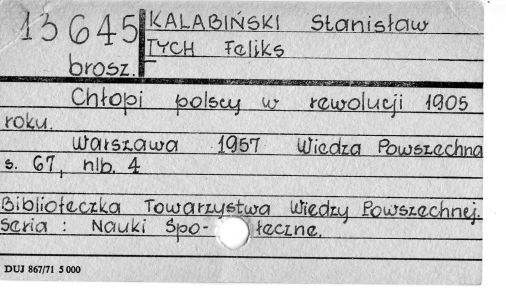 13645 KALABIŃSKI Stanisław
brosz. TYCH Feliks
Chłopi polscy w rewolucji 1905
roku.
Warszawa 1957 Wiedza Powszechna
s. 67, nlb. 4
Biblioteczka Towarzystwa Wiedzy Powszechnej.
Seria: Nauki Spo- łeczne.
DUJ 867/71 5 000